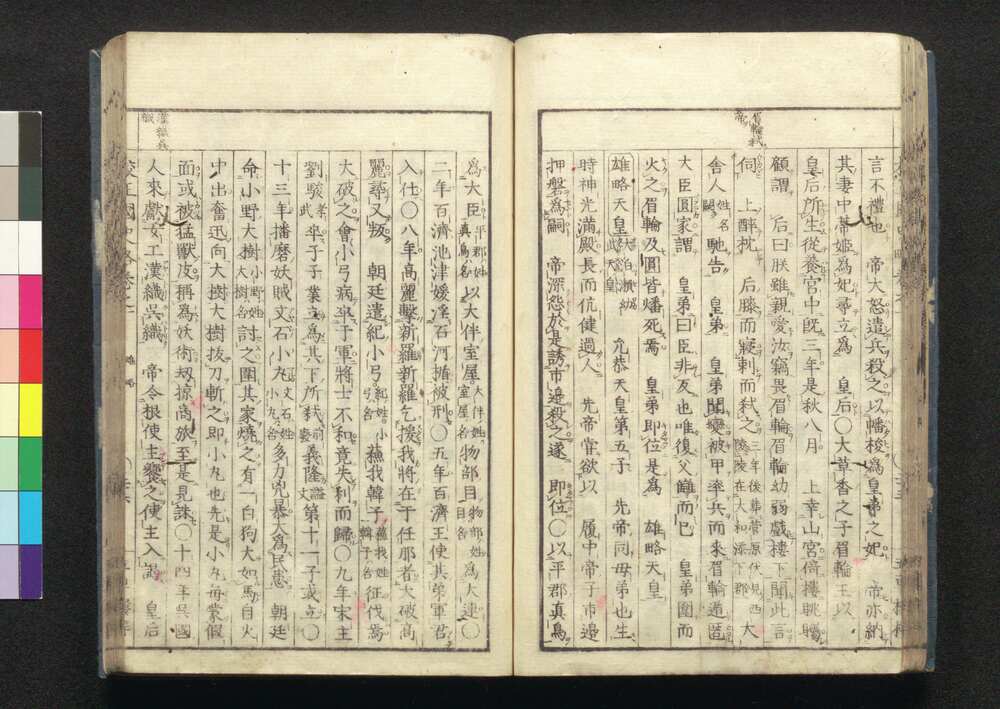 眉輪弑
帝
言不禮也 帝大怒遣兵殺之以幡梭爲皇帝之妃 帝亦納
其妻中蒂姬爲妃尋立爲 皇后〇大草香之子眉輪王以
皇后所生從養宮中旣三年是秋八月 上幸山宮倚樓眺矚
顧謂 后曰朕雖親愛汝竊畏眉輪眉輪幼弱戲樓下聞此言
伺 上醉枕 后膝而寢刺而弑之三年後葬菅原伏見西陵陵在大和添下郡 大
舍人姓名闕馳告 皇弟 皇弟聞變被甲率兵而來眉輪遁匿
大臣圓家謂 皇弟曰臣非反也唯復父讎而已 皇弟圍而
火之眉輪及圓皆燔死焉 皇弟即位是爲 雄略天皇
雄略天皇 允恭天皇第五子 先帝同母弟也生
時神光滿殿長而伉健過人 先帝嘗欲以 履中帝子市邊
押磐爲嗣 帝深怨於是誘市邊殺之遂 即位〇以平郡真鳥
漢織吳
織
爲大臣平郡姓真鳥名以大伴室屋大伴姓室屋名物部目物部姓目名爲大連〇
二年百濟池津媛淫石河楯被刑〇五年百濟王使其弟軍君
入仕〇八年高麗擊新羅新羅乞援我將在于任那者大破高
麗新羅又叛 朝廷遣紀小弓紀姓小弓名蘇我韓子蘇我姓韓子名征伐焉
大破之會小弓病卒于軍將士不和竟失利而歸〇九年宋主
劉駿孝武卒子子業立爲其下所弑前廢義隆謚文第十一子彧立〇
十三年播磨妖賊文石小丸文石姓小丸名多力兇暴大爲民患 朝廷
命小野大樹小野姓大樹名討之圍其家燒之有一白狗大如馬自火
中出奮迅向大樹大樹拔刀斬之即小丸也先是小丸每蒙假
面或被猛獸皮稱爲妖術刧掠高放至是見誅〇十四年吳國
人來獻女工漢織吳織 帝令根使主饗之使主入謁 皇后